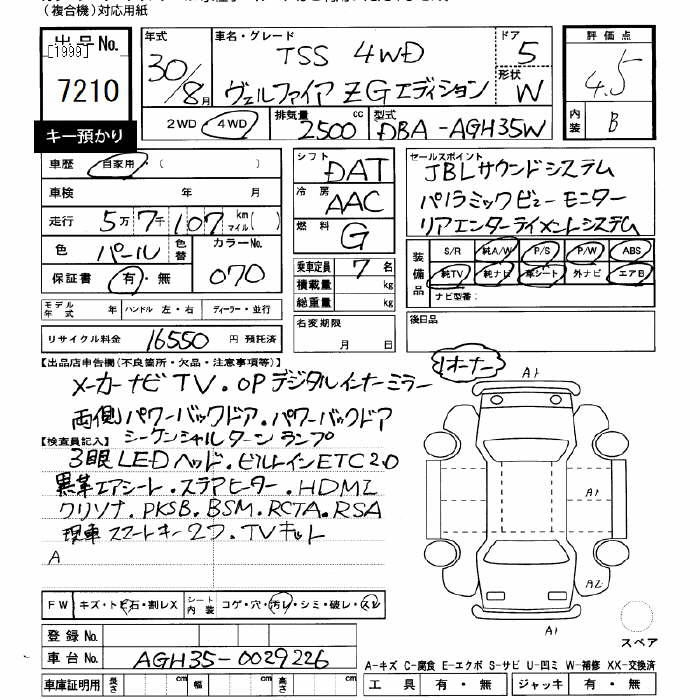 (複合機)対応用紙
出品No.
[1999]
7210
キー預かり
年式
30/8月
車名・グレード
TSS 4WD
ヴェルファイア ZGエディション
ドア
5
形状
W
評価点
4.5
内装
B
2WD・4WD
排気量
2500 cc
型式
DBA-AGH35W
車歴 自家用・( )
車検 年 月
走行 5万7千107 km マイル( )
色 パール 色替
カラーNo.
070
保証書 有・無
モデル年式 年 ハンドル 左・右 ディーラー・並行
リサイクル料金 16550 円 預託済
シフト DAT
冷房 AAC
燃料 G
乗車定員 7 名
積載量 kg
総重量 kg
名変期限
月 日
セールスポイント
JBLサウンドシステム
パノラミックビューモニター
リアエンターテイメントシステム
装備品
S/R 純A/W P/S P/W ABS
純TV 純ナビ 革シート 外ナビ エアB
ナビ型番:
後日品
【出品店申告欄(不良箇所・欠品・注意事項等)】
1オーナー
メーカーナビTV・OPデジタルインナーミラー
両側パワーバックドア・パワーバックドア
【検査員記入】
シーケンシャルターンランプ
3眼LEDヘッド・ビルトインETC2.0
黒革エアシート・ステアヒーター・HDMI
クリソナ・PKSB・BSM・RCTA・RSA
現車スマートキー2ケ・TVキット
A
A1
A1
A2
A1
FW キズ・トビ石・割レX
シート内装 コゲ・穴・汚レ・シミ・破レ・スレ
登録No.
車台No. AGH35-0029226
車庫証明用 長さ cm 幅 cm 高さ cm
スペア
A-キズ C-腐食 E-エクボ S-サビ U-凹ミ W-補修 XX-交換済
工具 有・無 ジャッキ 有・無